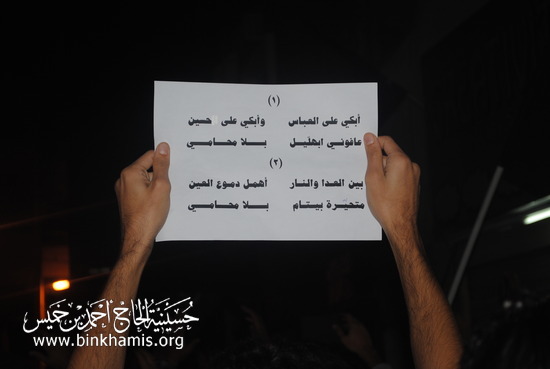 (١)
أبكي على العباس وأبكي على حسين
عافوني ابهليل بــلا محامــي
(٢)
بين العدا والنار أهمل دموع العين
متحيّرة بيتام بــلا محامــي
حسينية الحاج أحمد بن خميس
www.binkhamis.org